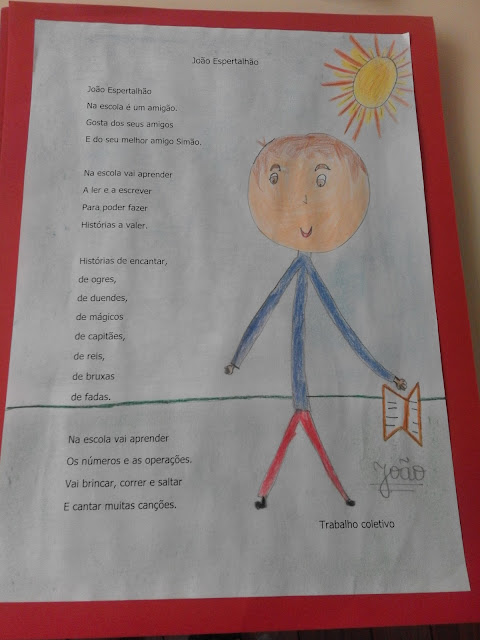 João Espertalhão
João Espertalhão
Na escola é um amigão.
Gosta dos seus amigos
E do seu melhor amigo Simão.
Na escola vai aprender
A ler e a escrever
Para poder fazer
Histórias a valer.
Histórias de encantar,
de ogres,
de duendes,
de mágicos
de capitães,
de reis,
de bruxas
de fadas.
Na escola vai aprender
Os números e as operações.
Vai brincar, correr e saltar
E cantar muitas canções.
João
Trabalho coletivo